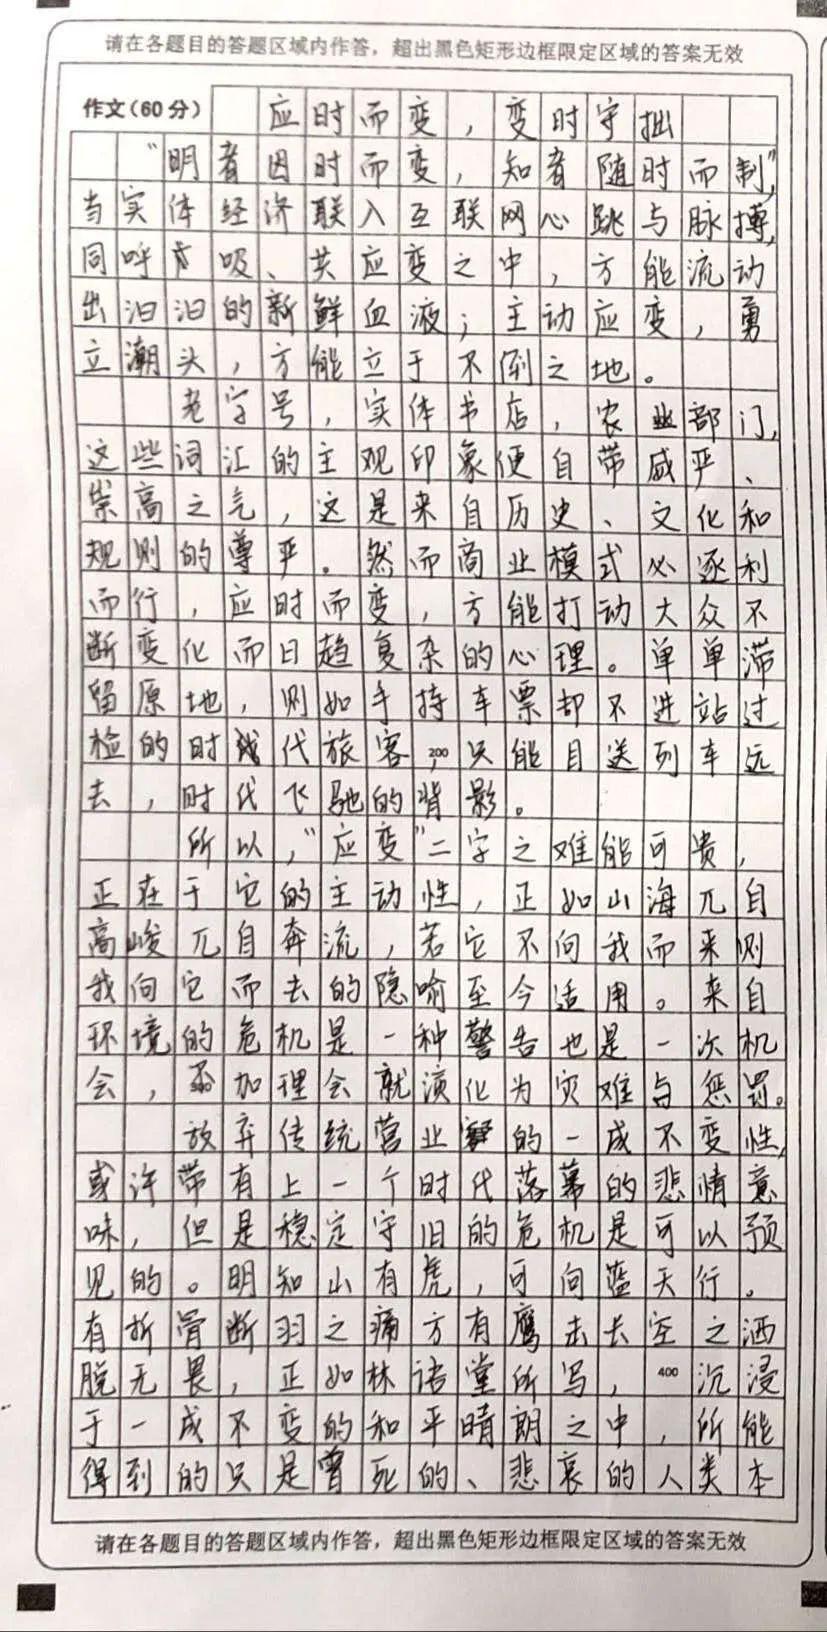 请在各题目的答题区域内作答，超出黑色矩形边框限定区域的答案无效
作文(60分) 应时而变，变时守拙
“明者因时而变，知者随时而制”，
当实体经济联入互联网心跳与脉搏，
同呼吸、共应变之中，方能流动
出汩汩的新鲜血液；主动应变，勇
立潮头，方能立于不倒之地。
老字号，实体书店，农业部门，
这些词汇的主观印象便自带威严、
崇高之气，这是来自历史、文化和
规则的尊严。然而商业模式必逐利
而行，应时而变，方能打动大众不
断变化而日趋复杂的心理。单单滞
留原地，则如手持车票却不进站过
检的时代旅客，200只能目送列车远
去，时代飞驰的背影。
所以，“应变”二字之难能可贵，
正在于它的主动性，正如山海兀自
高峻兀自奔流，若它不向我而来则
我向它而去的隐喻至今适用。来自
环境的危机是一种警告也是一次机
会，不加理会就演化为灾难与惩罚。
放弃传统营业的一成不变性，
或许带有上一个时代落幕的悲情意
味，但是稳定守旧的危机是可以预
见的。明知山有虎，可向蓝天行。
有折骨断羽之痛方有鹰击长空之洒
脱无畏，正如林语堂所写，400沉浸
于一成不变的和平晴朗之中，所能
得到的只是曾死的、悲哀的人类本
请在各题目的答题区域内作答，超出黑色矩形边框限定区域的答案无效